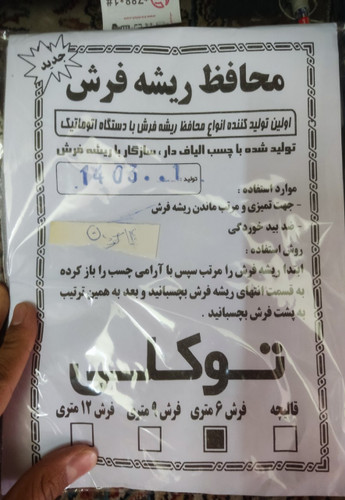 جدید
محافظ ریشه فرش
اولین تولید کننده انواع محافظ ریشه فرش با دستگاه اتوماتیک
تولید شده با چسب الیاف دار، سازگار با ریشه فرش
تولید
موارد استفاده :
- جهت تمیزی و مرتب ماندن ریشه فرش
- ضد بید خوردگی
روش استفاده :
ابتدا ریشه فرش را مرتب سپس با آرامی چسب را باز کرده
به قسمت انتهای ریشه فرش بچسبانید و بعد به همین ترتیب
به پشت فرش بچسبانید .
قالیچه فرش ۶ متری فرش ۹ متری فرش ۱۲ متری